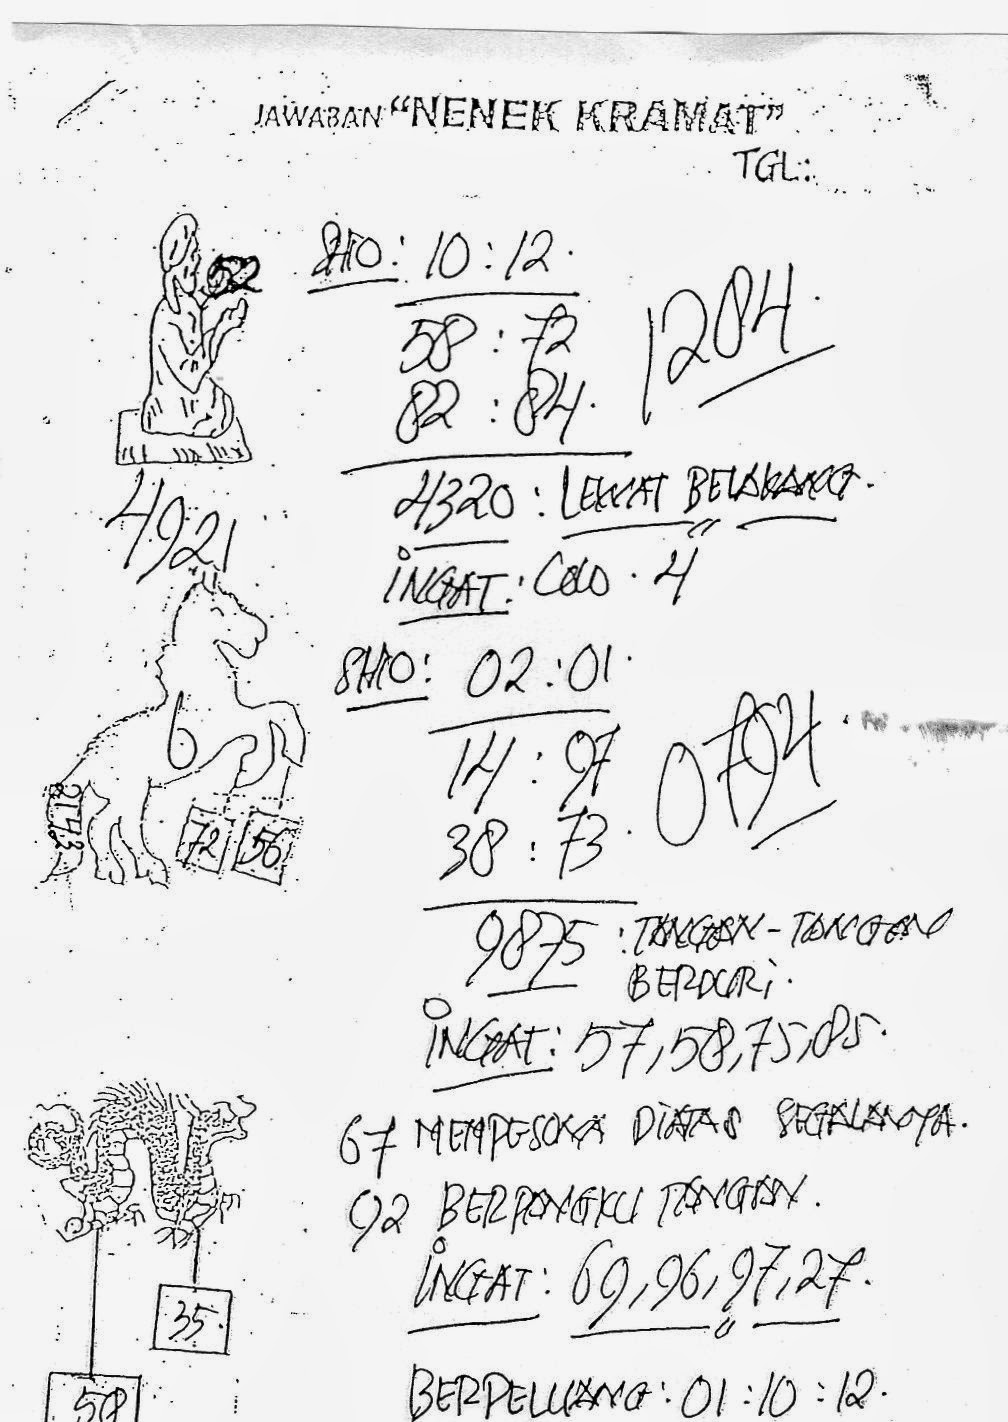 JAWABAN “NENEK KRAMAT”
TGL:
SHIO: 10:12.
58 : 72
82 : 84.
1284.
4320 : LEWAT BELAKANG.
INGAT: Colo . 4
4921
SHIO: 02:01.
14 : 97
38 : 73.
0794.
6
2143
72 56
9875 : TANGAN-TANGAN
BERDURI.
INGAT: 57,58,75,85.
67 MEMPESONA DIATAS SEGALANYA.
92 BERPANGKU TANGAN.
INGAT: 69,96,97,27.
35
58
BERPELUANG: 01:10:12.